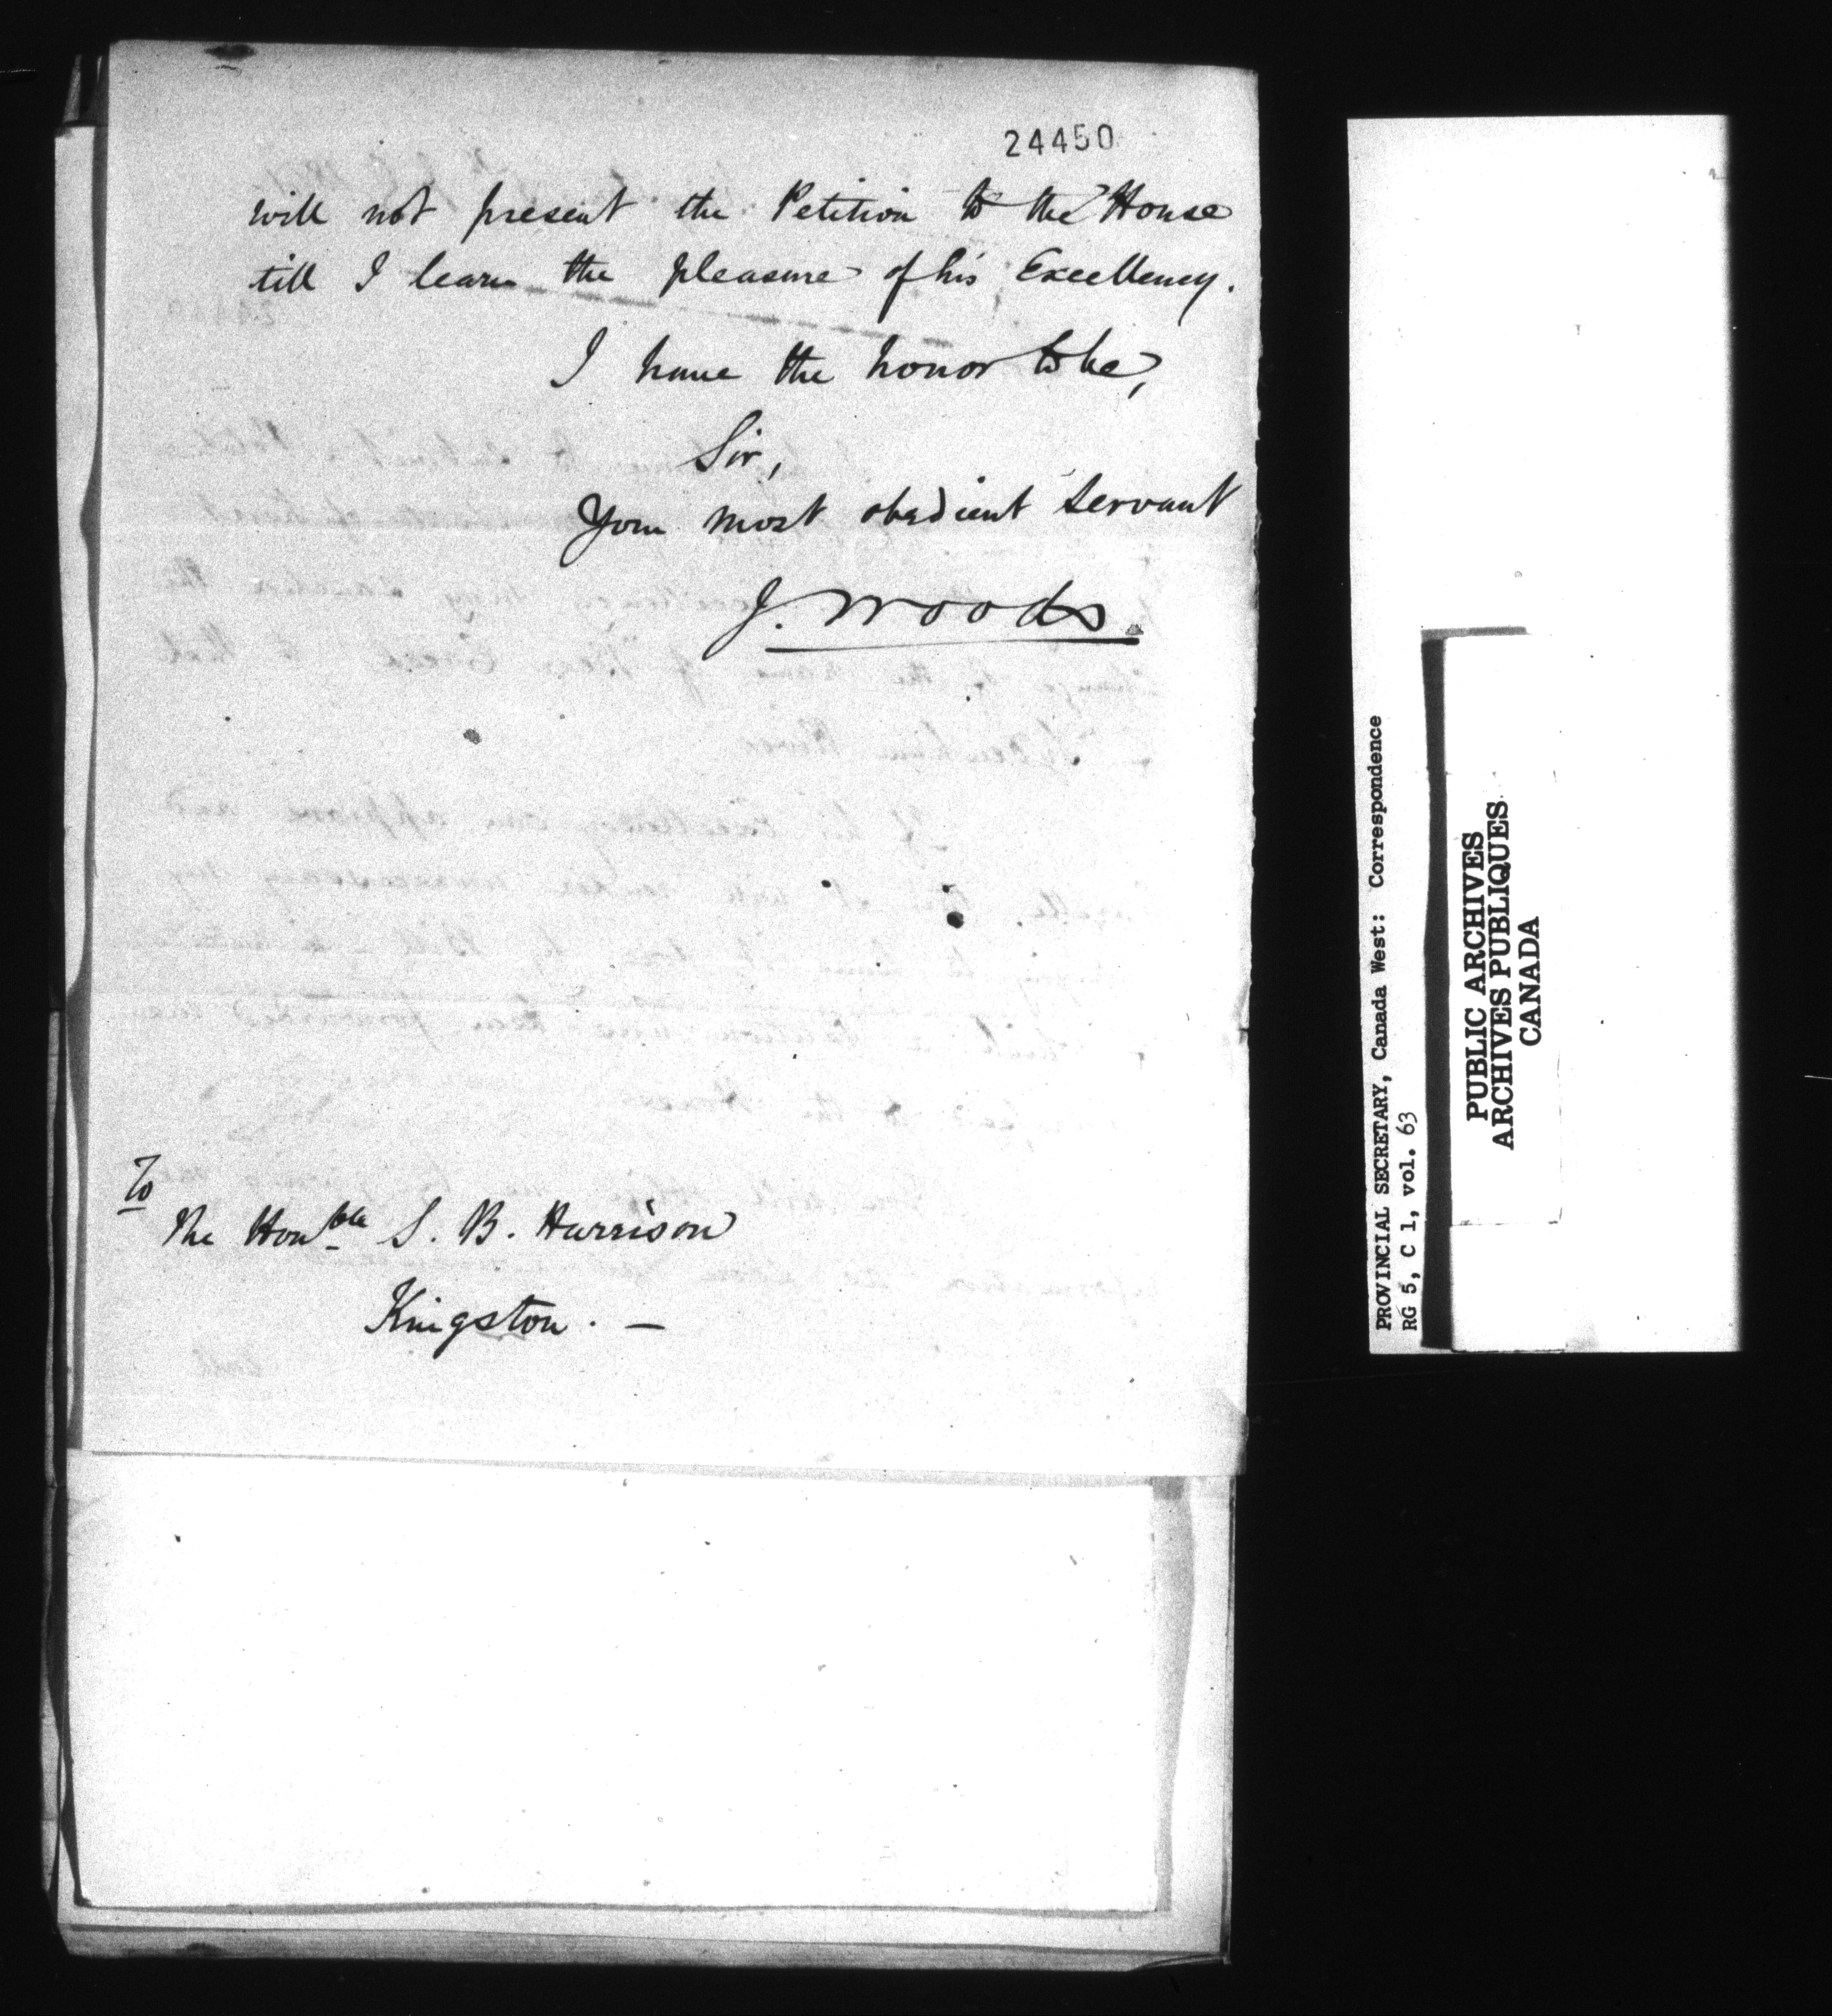 24450
will not present the Petition to the House
till I learn the pleasure of his Excellency.
I have the honor to be,
Sir,
Your most obedient servant
J. Woods.
To
The Honble S. B. Harrison
Kingston. —
PROVINCIAL SECRETARY, Canada West: Correspondence
RG 5, C 1, vol. 63
PUBLIC ARCHIVES
ARCHIVES PUBLIQUES
CANADA